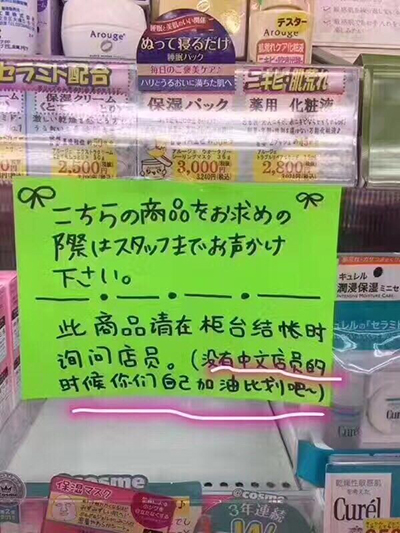 Arouge
Arouge
テスター
睡眠と美肌のいい関係
ぬって寝るだけ
睡眠パック
毎日のご褒美ケア♪
ハリとうるおいに満ちた肌へ
セラミド配合
ニキビ・肌荒れ
保湿クリーム
保湿パック
薬用 化粧液
2,500円
3,000円
2,800円
こちらの商品をお求めの
際はスタッフまでお声かけ
下さい。
此商品请在柜台结帐时
询问店员。(没有中文店员的
时候你们自己加油比划吧~)
キュレル
潤浸保湿
Curél
Curél
乾燥性敏感肌
を考えた
@cosme
保湿マスク
@cosme
3年連続